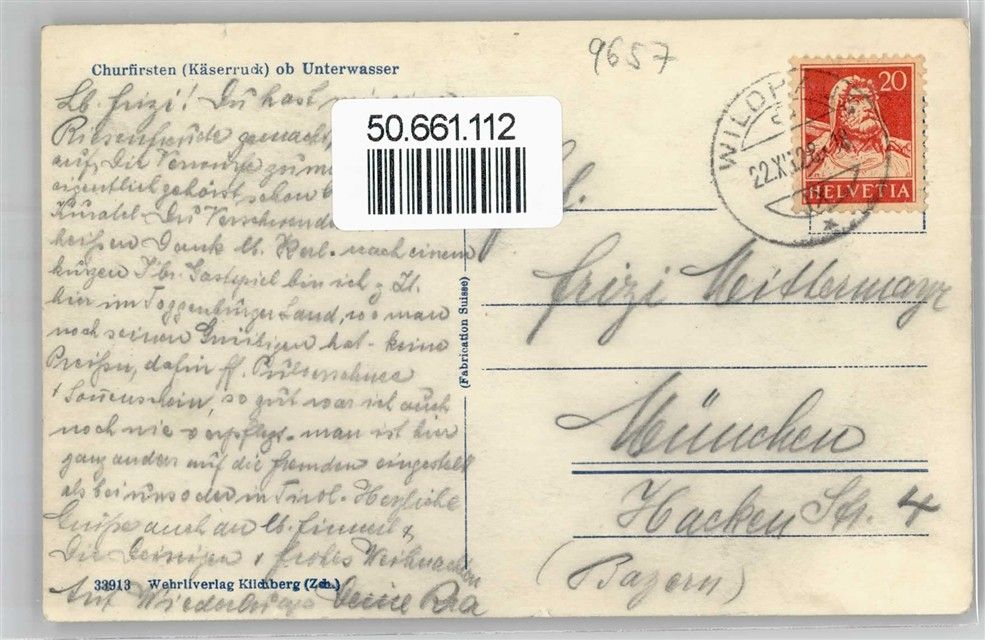 Churfirsten (Käserruck) ob Unterwasser
9657
Lb. Frizi! Du hast
Riesenfreude gemacht,
auf, die
eigentlich gehörst schon
Kuratel. Du Verschwende
heißen Dank lb. Kerl. nach einem
kurzen Gastspiel bin ich z. Zt.
hier im Toggenburger Land, wo man
noch seinen hat - keine
Preißen, dafür ff. Pulverschnee
+ Sonnenschein, so gut war ich auch
noch nie verpflegt. man ist hier
ganz anders auf die Fremden eingestellt
als bei uns oder in Tirol. Herzliche
Grüße auch an lb. &
die Deinigen + frohes Weihnachten
33913 Wehrliverlag Kilchberg (Zch.)
Auf Wiedersehen Deine
50.661.112
(Fabrication Suisse)
WILDH
22.XII.28.-18
20
HELVETIA
Frl.
Frizi Mittermayr
München
Hacken Str. 4
(Bayern)